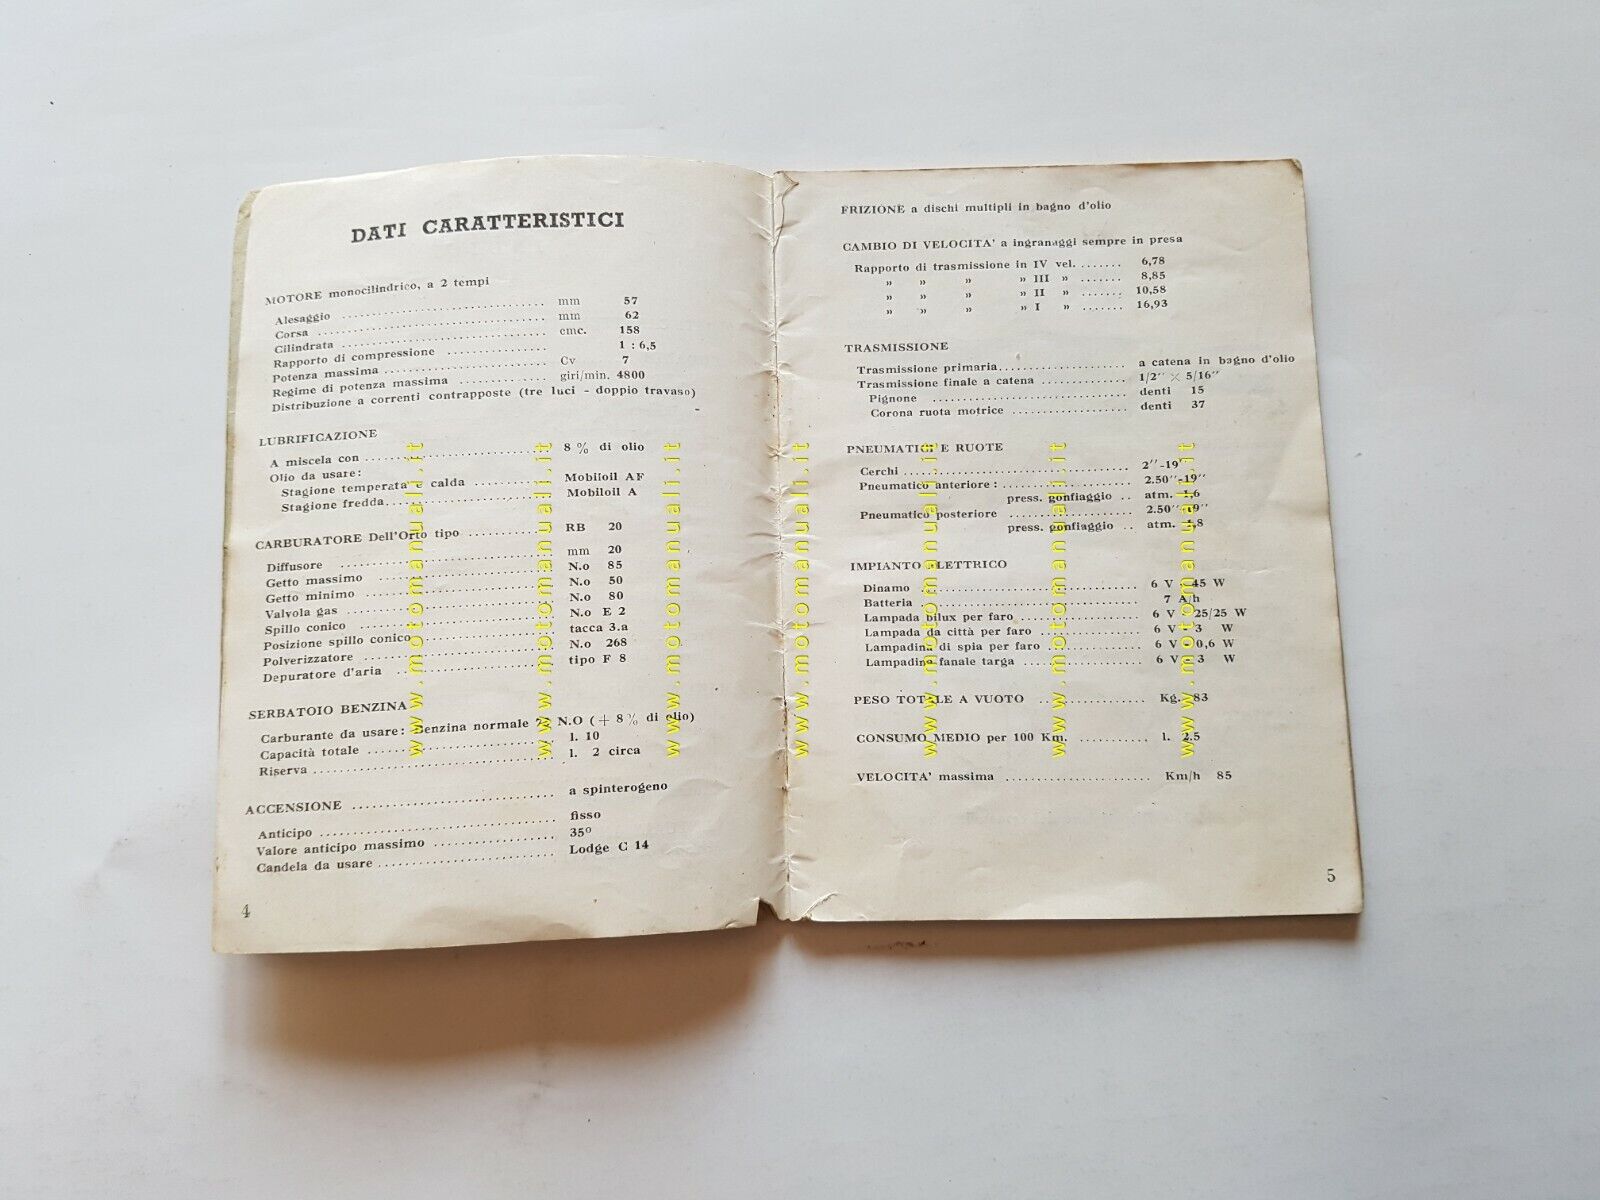 DATI CARATTERISTICI
MOTORE monocilindrico, a 2 tempi
Alesaggio ........ mm 57
Corsa ........ mm 62
Cilindrata ........ cmc. 158
Rapporto di compressione ........ 1 : 6,5
Potenza massima ........ Cv 7
Regime di potenza massima ........ giri/min. 4800
Distribuzione a correnti contrapposte (tre luci - doppio travaso)
LUBRIFICAZIONE
A miscela con ........ 8 % di olio
Olio da usare:
Stagione temperata e calda ........ Mobiloil AF
Stagione fredda ........ Mobiloil A
CARBURATORE Dell'Orto tipo ........ RB 20
Diffusore ........ mm 20
Getto massimo ........ N.o 85
Getto minimo ........ N.o 50
Valvola gas ........ N.o 80
Spillo conico ........ N.o E 2
Posizione spillo conico ........ tacca 3.a
Polverizzatore ........ N.o 268
Depuratore d'aria ........ tipo F 8
SERBATOIO BENZINA
Carburante da usare: Benzina normale N.O (+ 8% di olio)
Capacità totale ........ l. 10
Riserva ........ l. 2 circa
ACCENSIONE ........ a spinterogeno
Anticipo ........ fisso
Valore anticipo massimo ........ 35°
Candela da usare ........ Lodge C 14
4
FRIZIONE a dischi multipli in bagno d'olio
CAMBIO DI VELOCITA' a ingranaggi sempre in presa
Rapporto di trasmissione in IV vel. ....... 6,78
» » » » III » ....... 8,85
» » » » II » ....... 10,58
» » » » I » ....... 16,93
TRASMISSIONE
Trasmissione primaria ........ a catena in bagno d'olio
Trasmissione finale a catena ........ 1/2'' × 5/16''
Pignone ........ denti 15
Corona ruota motrice ........ denti 37
PNEUMATICI E RUOTE
Cerchi ........ 2''-19''
Pneumatico anteriore: ........ 2.50''-19''
press. gonfiaggio .. atm. 1,6
Pneumatico posteriore ........ 2.50''-19''
press. gonfiaggio .. atm. 1,8
IMPIANTO ELETTRICO
Dinamo ........ 6 V - 45 W
Batteria ........ 7 A/h
Lampada bilux per faro ........ 6 V - 25/25 W
Lampada da città per faro ........ 6 V - 3 W
Lampadina di spia per faro ........ 6 V - 0,6 W
Lampadina fanale targa ........ 6 V - 3 W
PESO TOTALE A VUOTO ........ Kg. 83
CONSUMO MEDIO per 100 Km. ........ l. 2.5
VELOCITA' massima ........ Km/h 85
5
www.motomanuali.it
www.motomanuali.it
www.motomanuali.it
www.motomanuali.it
www.motomanuali.it
www.motomanuali.it
www.motomanuali.it